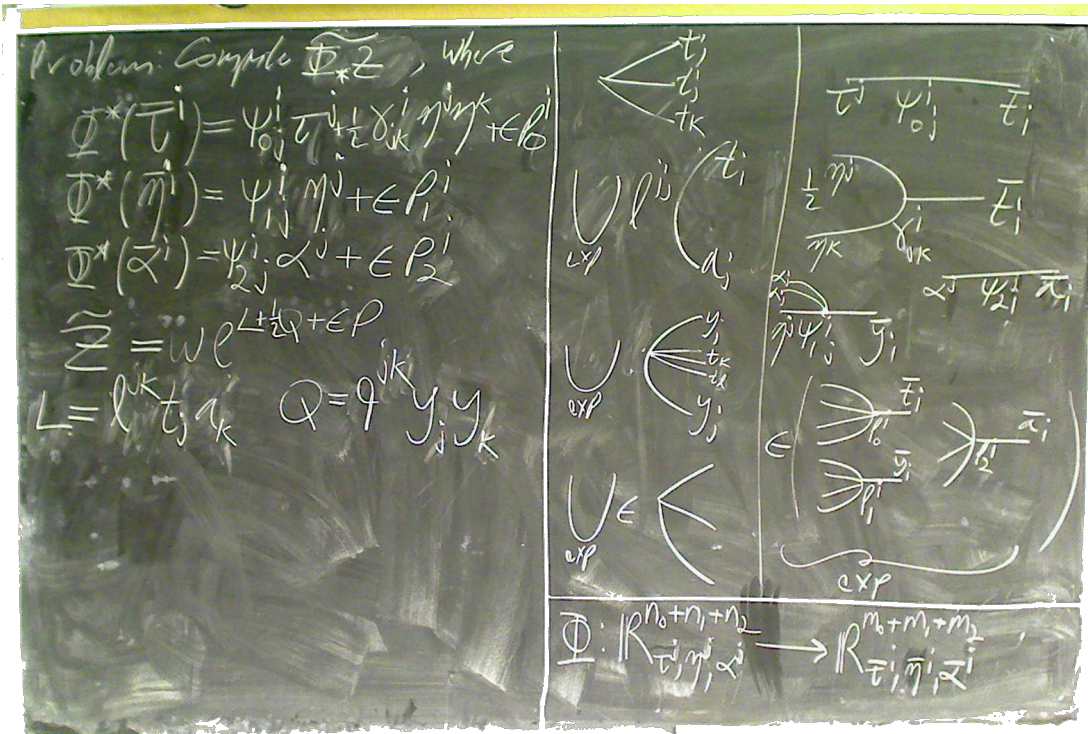 Problem: Compute \widetilde{Φ_*Z}, where
Φ^*(\bar{τ}^i) = ψ_{0j}^i τ^j + ½ γ_{jk}^i η^j η^k + ϵP_0^i
Φ^*(\bar{η}^i) = ψ_{1j}^i η^j + ϵP_1^i
Φ^*(\bar{α}^i) = ψ_{2j}^i α^j + ϵP_2^i
\widetilde{Z} = w e^{L+½Q+ϵP}
L = l^{jk} t_j a_k Q = q^{jk} y_j y_k
t_i
t_j
t_k
∪ l^{ij} t_i
exp a_j
∪ y_i
t_k
exp y_j
∪ ϵ
exp
τ^j ψ_{0j}^i \bar{t}_i
½ η^j \bar{t}_i
η^k γ_{jk}^i
α^j ψ_{2j}^i \bar{a}_i
η^j ψ_{1j}^i \bar{y}_i
ϵ \bar{t}_i P_0^i \bar{a}_i P_2^i
\bar{y}_i P_1^i
exp
Φ: ℝ^{n_0+n_1+n_2}_{τ^j, η^j, α^j} → ℝ^{m_0+m_1+m_2}_{\bar{τ}^i, \bar{η}^i, \bar{α}^i}